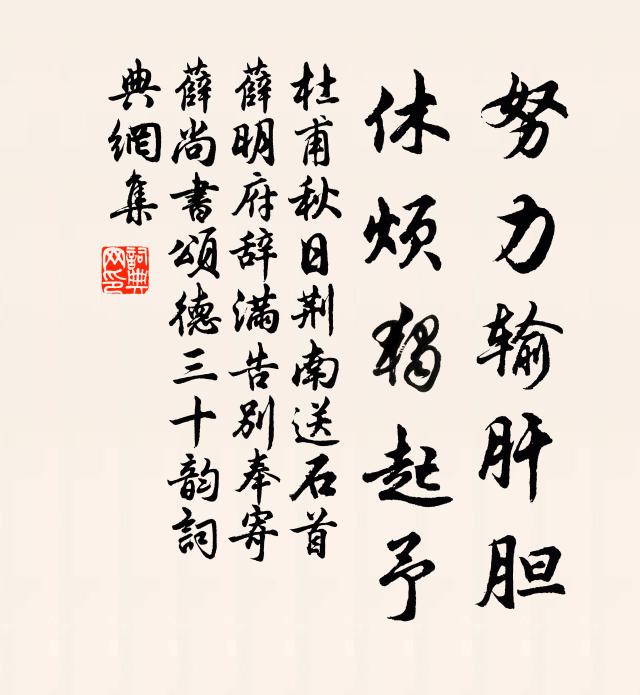 努力输肝胆
休烦獨起予
杜甫秋日荆南送石首
薛明府辞满告别奉寄
薛尚書颂德三十韵詞
典網集
詞典
网印